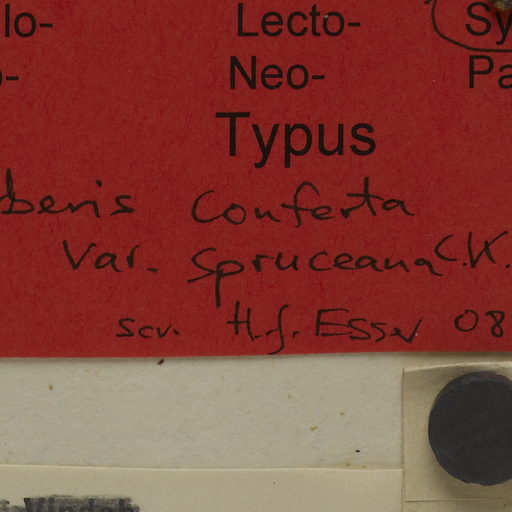 lo- Lecto- Sy
o- Neo- Pa
Typus
beris Conferta
Var. Spruceana C.K.
scr. H.J. Esser 08